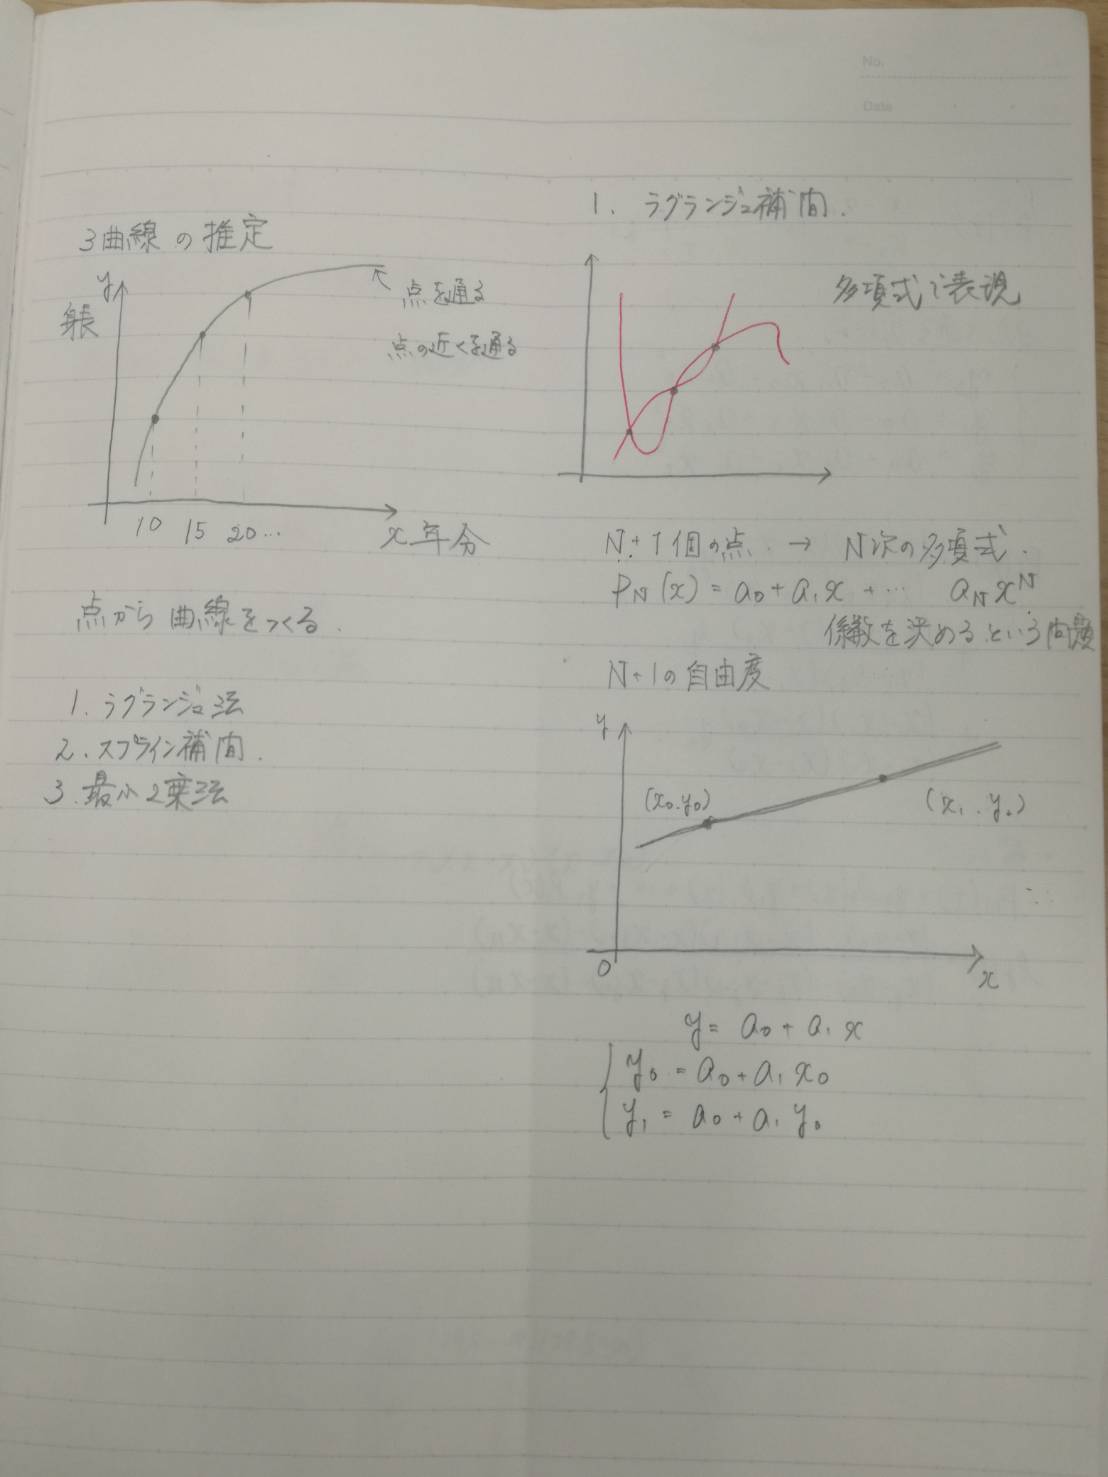 No.
Date
3 曲線の推定
y
身長
点を通る
点の近くを通る
10 15 20...
x 年分
点から曲線をつくる.
1. ラグランジュ法
2. スプライン補間.
3. 最小2乗法
1. ラグランジュ補間.
多項式で表現
N+1個の点. → N次の多項式.
PN(x) = a0 + a1x + ... aNx^N
係数を決めるという問題
N+1の自由度
y
(x0.y0)
(x1.y0)
0
x
y = a0 + a1 x
y0 = a0 + a1 x0
y1 = a0 + a1 y0